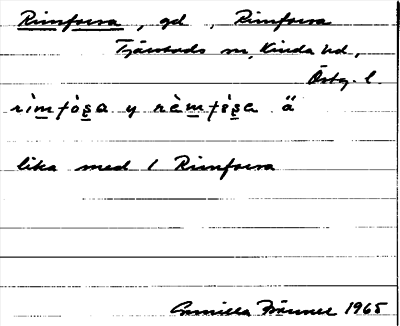 Rimforsa, gd, Rimforsa
Tjärstads sn, Kinda hd,
Östg. l.
rìm̲fò̱s̱a y rèm̲fò̱s̱a ä
lika med 1 Rimforsa
Gunilla 1965